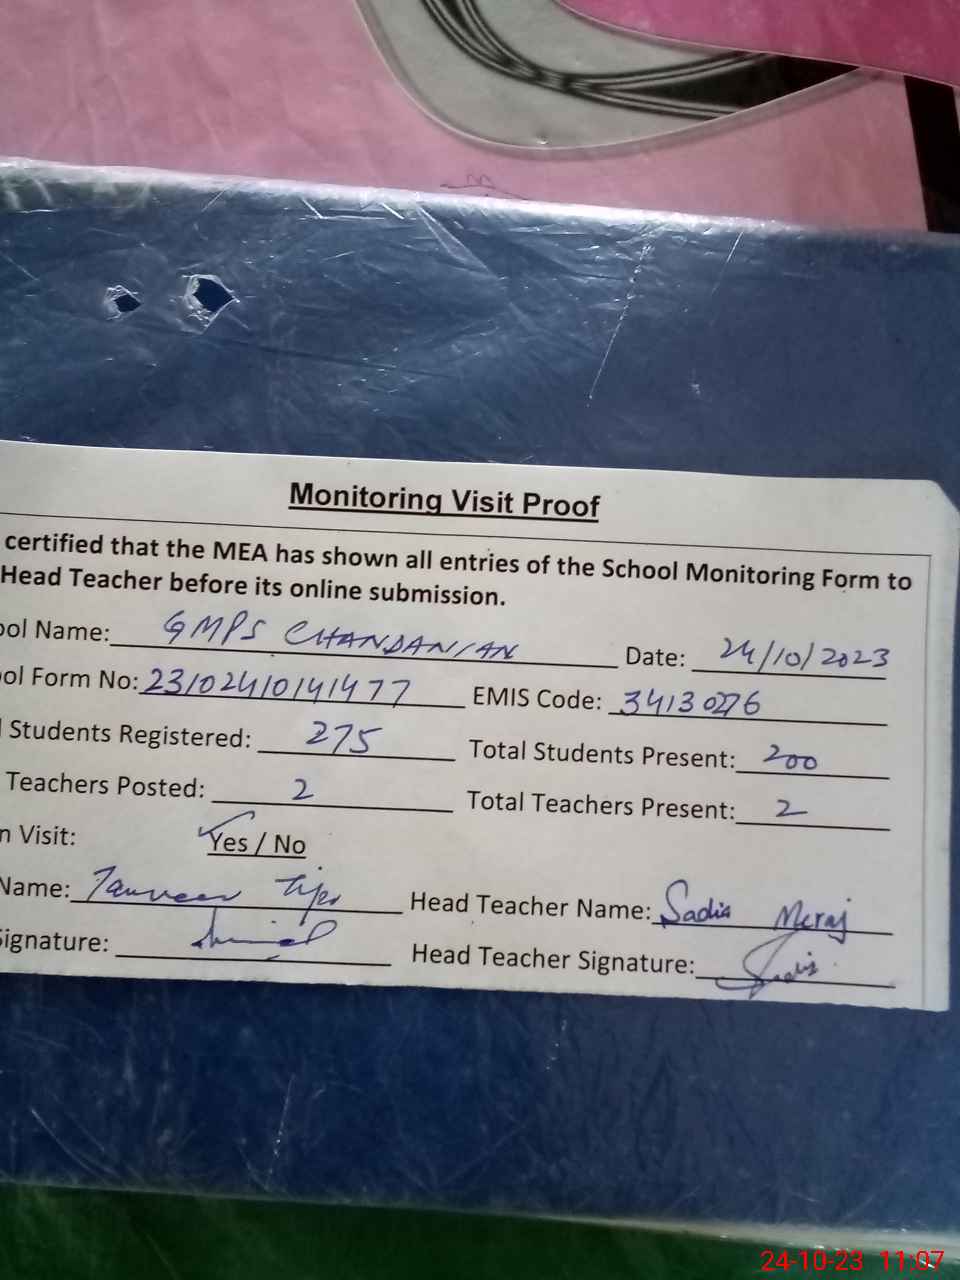 Monitoring Visit Proof
certified that the MEA has shown all entries of the School Monitoring Form to
Head Teacher before its online submission.
ool Name: GMPS CHANDANIAN Date: 24/10/2023
ol Form No: 23102410141477 EMIS Code: 34130276
l Students Registered: 275 Total Students Present: 200
Teachers Posted: 2 Total Teachers Present: 2
n Visit: Yes / No
Name: Tanveer Head Teacher Name: Sadia Meraj
Signature: Head Teacher Signature: Sadia
24-10-23 11:07